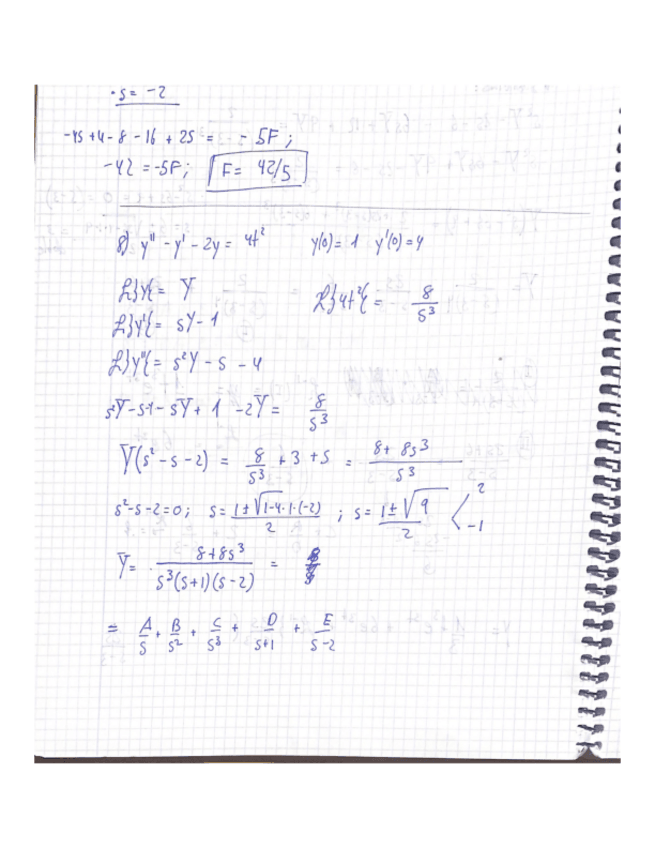 · s = -2
-4s + 4 - 8 - 16 + 2s = - 5F ;
-42 = -5F ; F = 42/5
8) y'' - y' - 2y = 4t² y(0) = 1 y'(0) = 4
L}y{ = Y L}4t²{ = 8/s³
L}y'{ = sY - 1
L}y''{ = s²Y - s - 4
s²Y - s - 4 - sY + 1 - 2Y = 8/s³
Y(s² - s - 2) = 8/s³ + 3 + s = 8 + 8s³/s³
s² - s - 2 = 0 ; s = 1 ± √1-4·1·(-2)/2 ; s = 1 ± √9/2 < 2 -1
Y = 8 + 8s³/s³(s+1)(s-2) =
= A/s + B/s² + C/s³ + D/s+1 + E/s-2